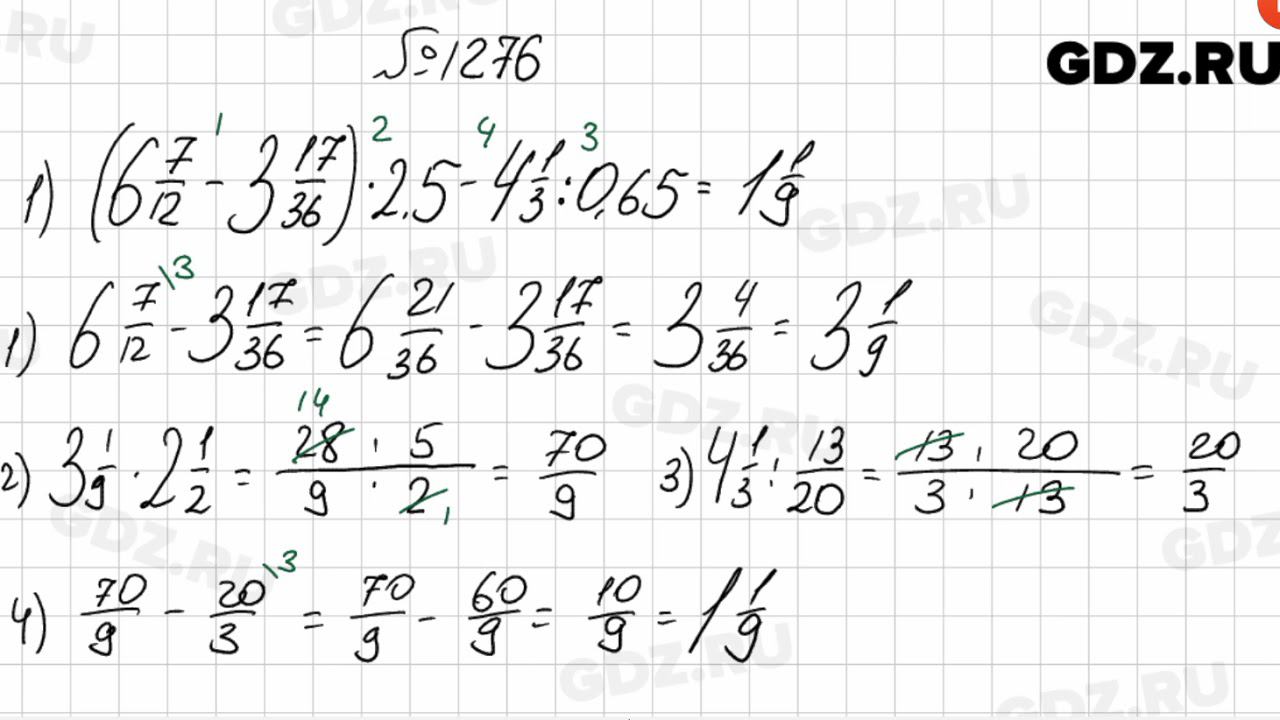 №1276
GDZ.RU
1) (6 7/12 - 3 17/36) · 2,5 - 4 1/3 : 0,65 = 1 1/9
1 2 4 3
1) 6 7/12 \3 - 3 17/36 = 6 21/36 - 3 17/36 = 3 4/36 = 3 1/9
2) 3 1/9 · 2 1/2 = 28 14 · 5 / 9 · 2 1 = 70/9 3) 4 1/3 : 13/20 = 13 · 20 / 3 · 13 = 20/3
4) 70/9 - 20/3 \3 = 70/9 - 60/9 = 10/9 = 1 1/9